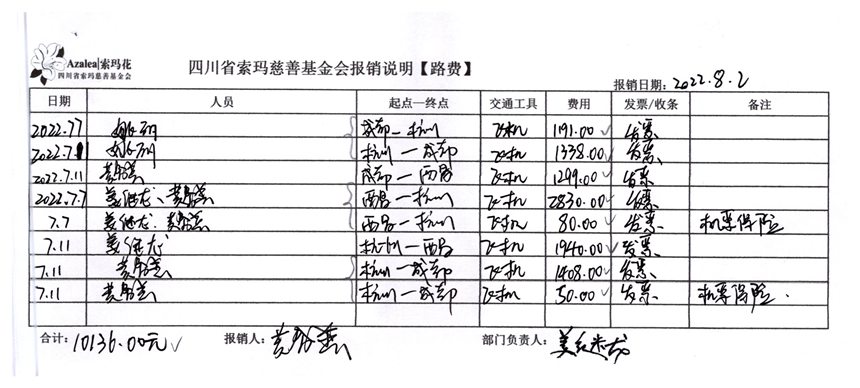 Azalea|索玛花
四川省索玛慈善基金会
四川省索玛慈善基金会报销说明【路费】
报销日期: 2022.8.2
日期 人员 起点—终点 交通工具 费用 发票/收条 备注
2022.7.7 成都—杭州 飞机 1191.00 发票
2022.7.11 杭州—成都 飞机 1338.00 发票
2022.7.11 成都—西昌 飞机 1299.00 发票
2022.7.7 西昌—杭州 飞机 2830.00 发票
7.7 西昌—杭州 飞机 80.00 发票 机票保险
7.11 杭州—西昌 飞机 1940.00 发票
7.11 杭州—成都 飞机 1408.00 发票
7.11 杭州—成都 飞机 50.00 发票 机票保险.
合计: 10136.00元 报销人: 部门负责人: